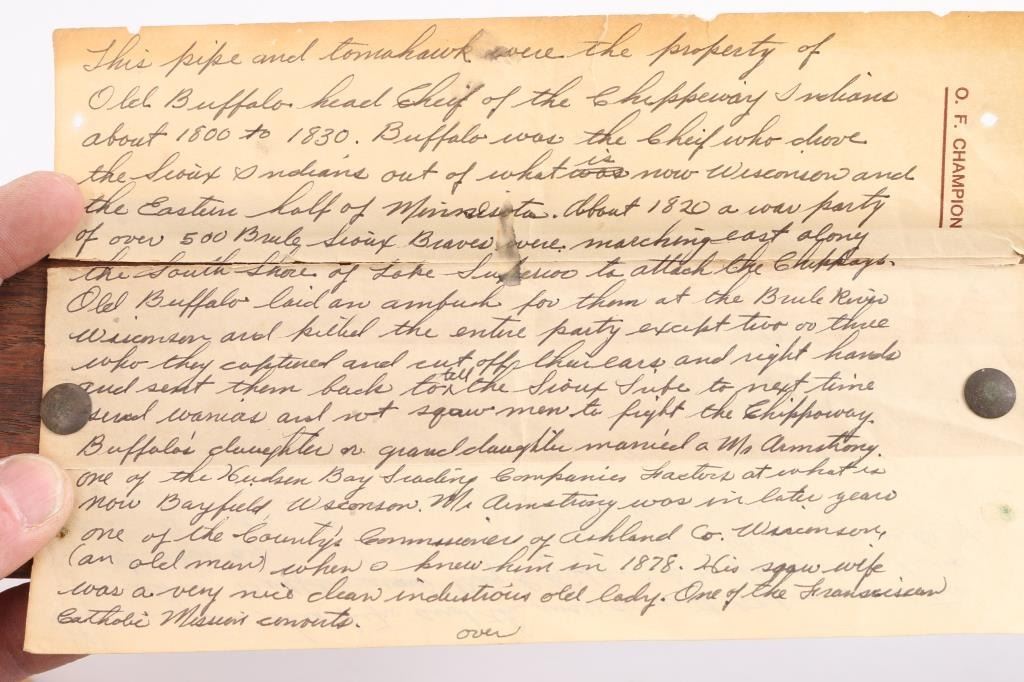 This pipe and tomahawk were the property of
Old Buffalo head Cheif of the Chippeway Indians
about 1800 to 1830. Buffalo was the Cheif who drove
the Sioux Indians out of what was is now Wisconson and
the Eastern half of Minnesiota. About 1820 a war party
of over 500 Brule Sioux Braves were marching east along
the South Shore of Lake Superior to attack the Chippays.
Old Buffalo laid an ambush for them at the Brule River
Wsiconson, and killed the entire party except two or three
who they captured and cut off their ears and right hands
and sent them back to tell the Sioux Tribe to next time
send warriors and not sqaw men to fight the Chippoway.
Buffalo's daughter or grand daughter married a Mr Armstrong.
one of the Hudsen Bay Trading Companies Factors at what is
now Bayfield, Wsconson. Mr Armstrong was in later years
one of the County's Commssioners of Ashland Co. Wisconson,
(an old man) when I knew him in 1878. His sqaw wife
was a very nice clean industious old lady. One of the Franciscan
Catholic Mission converts.
over
O. F. CHAMPION